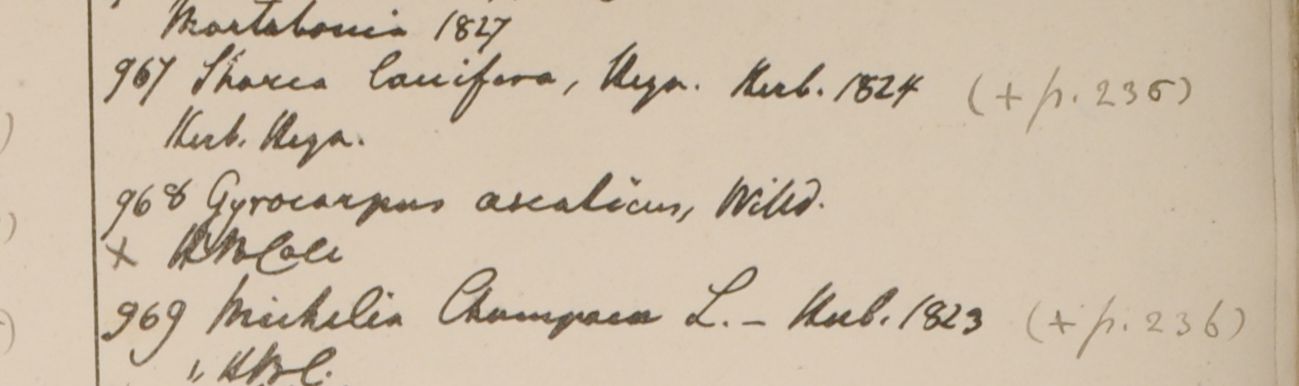 Martabania 1827
967 Shorea lancifera, Heyn. Herb. 1824 (+ p. 236)
Herb. Heyn.
968 Gyrocarpus asiaticus, Willd.
+ HBCalc
969 Michelia Champaca L. - Herb. 1823 (+ p. 236)
" HBC.